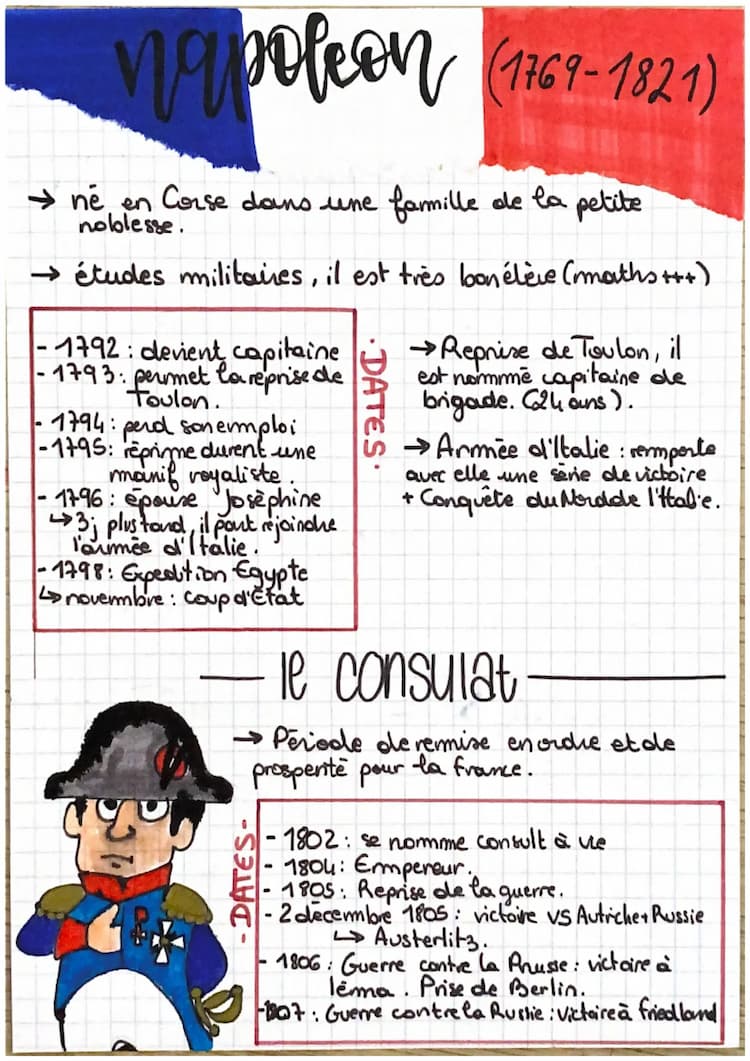 napoleon (1769-1821)
→ né en Corse dans une famille de la petite
noblesse.
→ études militaires, il est très bon élève (maths +++)
- 1792 : devient capitaine
- 1793 : permet la reprise de
Toulon.
- 1794 : perd son emploi
- 1795 : réprime durent une
manif royaliste.
- 1796 : épouse Joséphine
↳ 3j plus tard, il part rejoindre
l'armée d'Italie.
- 1798 : Expedition Egypte
↳ novembre : Coup d'État
. DATES .
→ Reprise de Toulon, il
est nommé capitaine de
brigade. (24 ans).
→ Armée d'Italie : remporte
avec elle une série de victoire
+ Conquête du Nord de l'Italie.
le consulat
→ Période de remise en ordre et de
prosperité pour la france.
- DATES -
- 1802 : se nomme consult à vie
- 1804 : Empereur.
- 1805 : Reprise de la guerre.
- 2 décembre 1805 : victoire VS Autriche + Russie
↳ Austerlitz.
- 1806 : Guerre contre la Prusse : victoire à
Iéma. Prise de Berlin.
- 1807 : Guerre contre la Russie : Victoire à friedland